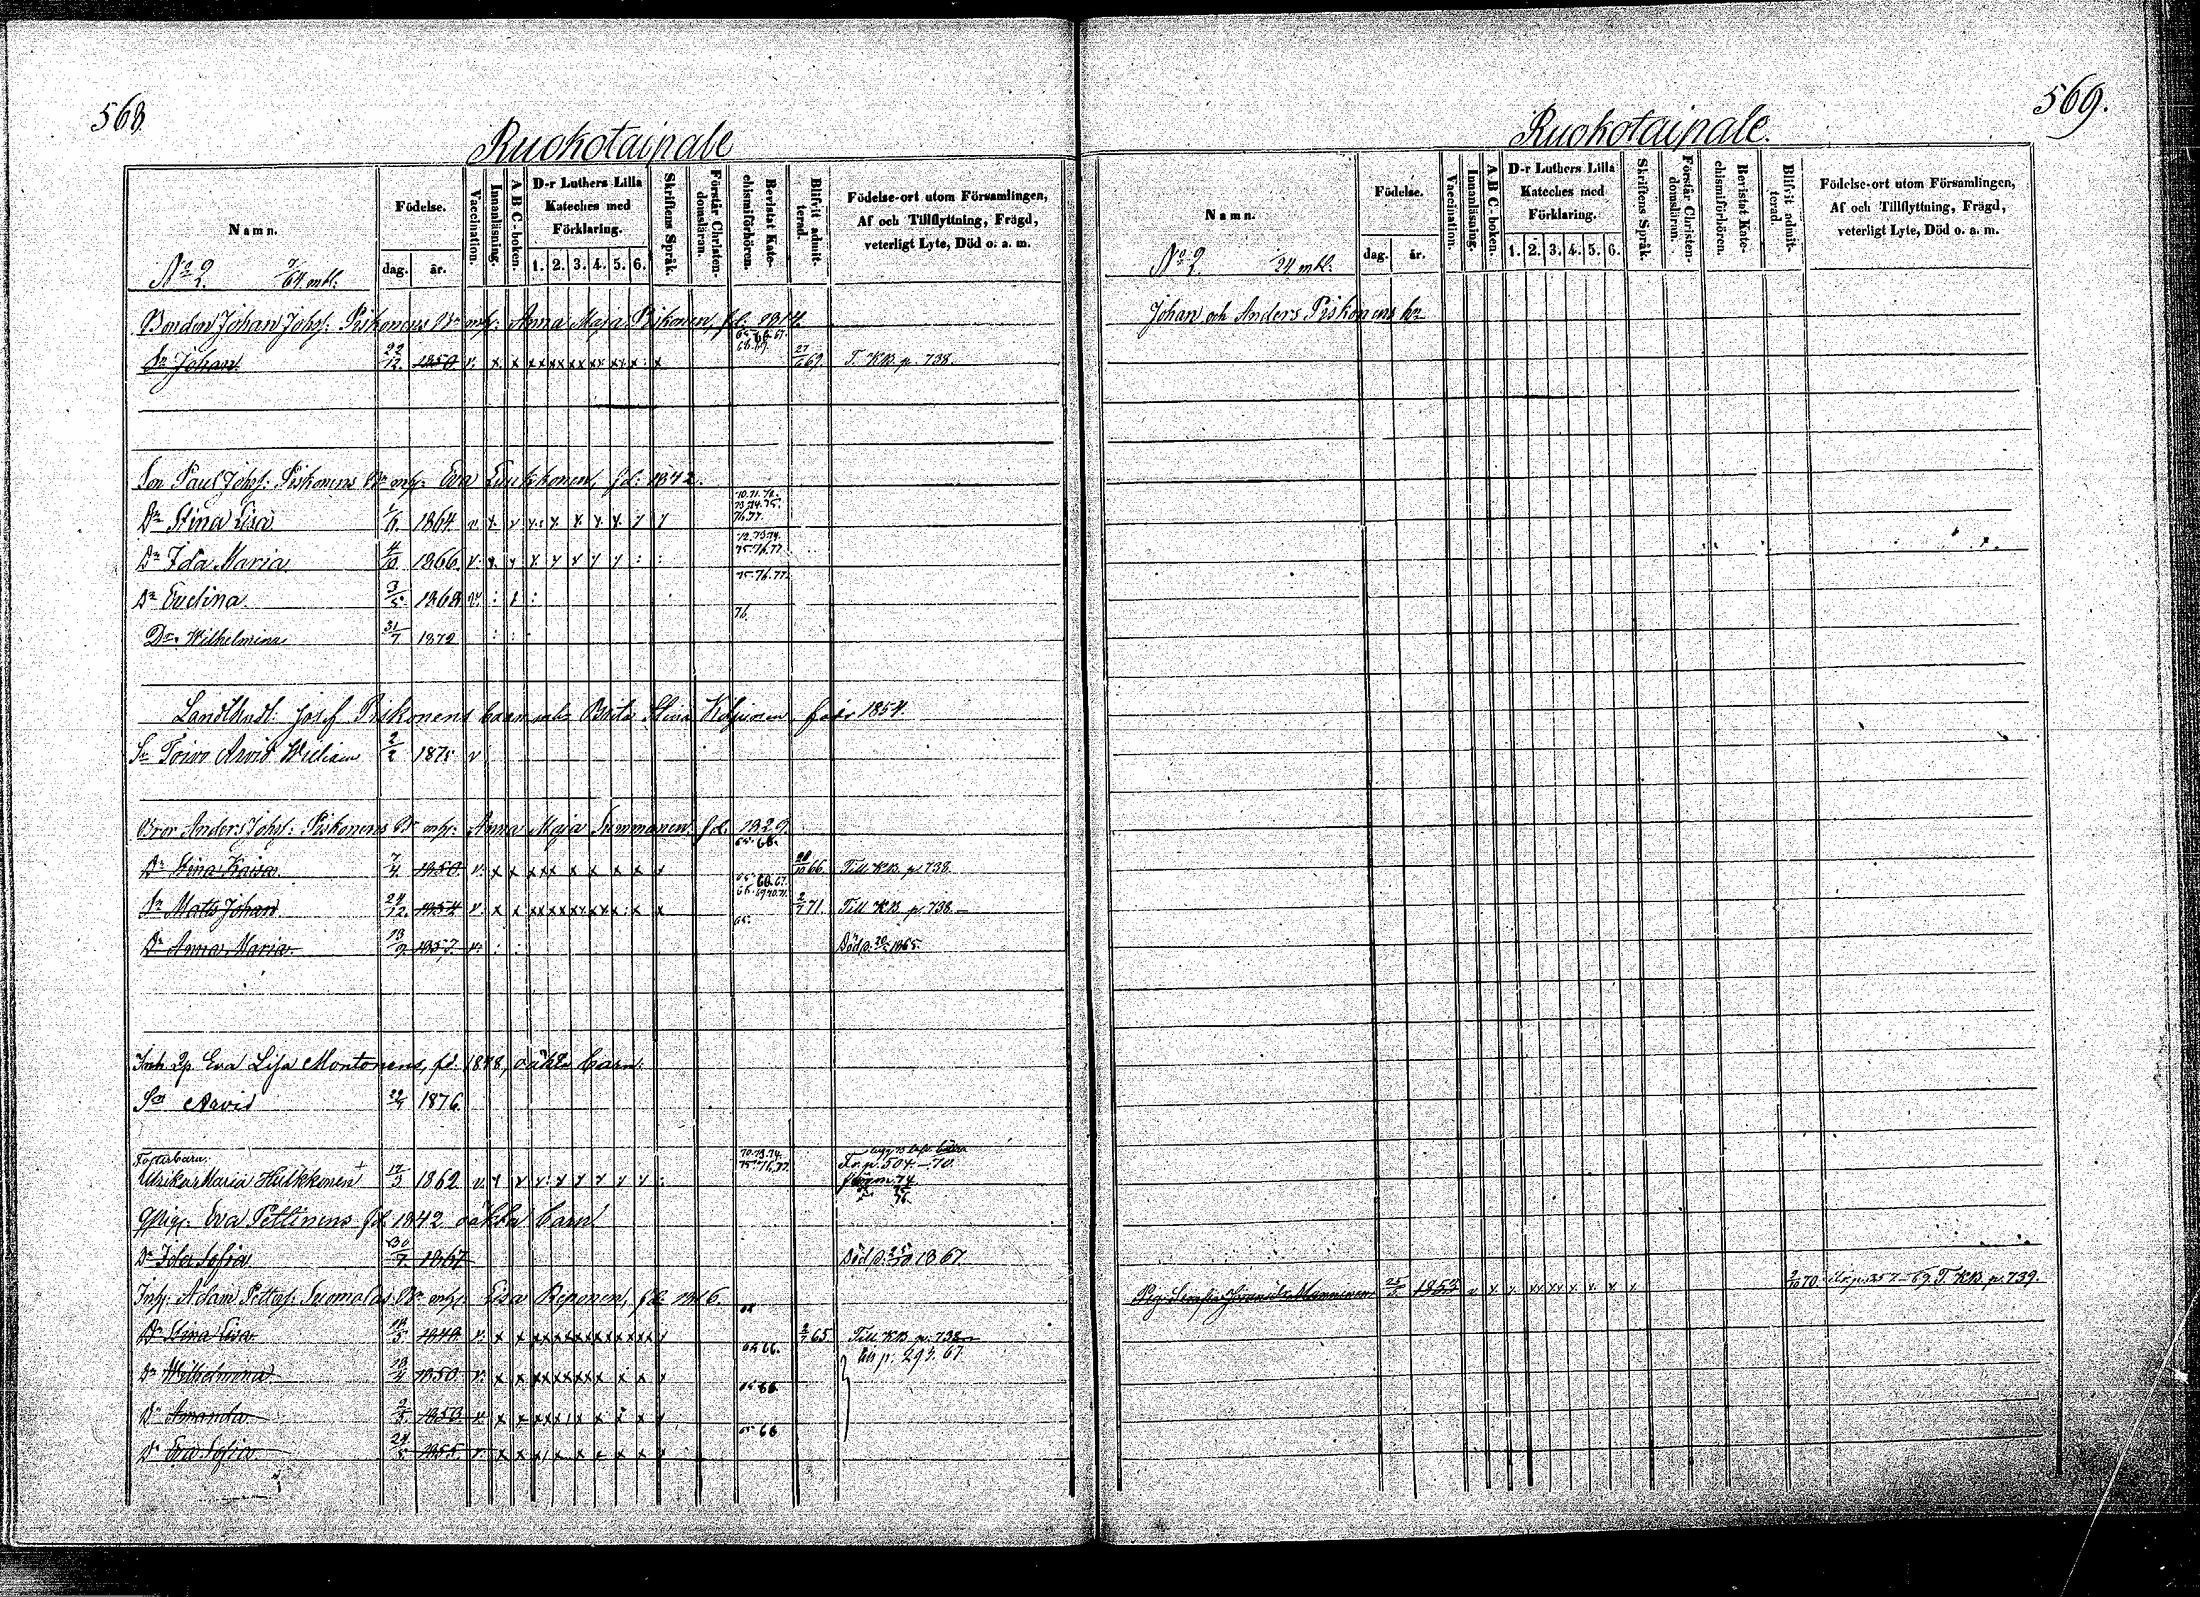 568.
Ruokotaipale
Namn.
Födelse.
dag. år.
Vaccination.
Innanläsning.
A B C-boken.
D-r Luthers Lilla
Kateches med
Förklaring.
1. 2. 3. 4. 5. 6.
Skriftens Språk.
Förstår Christen-
domsläran.
Bevistat Kate-
chismiförhören.
Blifvit admit-
terad.
Födelse-ort utom Församlingen,
Af och Tillflyttning, Frägd,
veterligt Lyte, Död o. a. m.
No 2. 7/64 mtl:
Bonden Johan Johs: Piskonens Bn m/h: Anna Maja Piskonen, fd: 1814.
65. 66. 67.
68. 69.
Sn Johan 22/12. 1850 v. x x x x x x x x x 27/6 69. T. KB. p. 738.
Son Paul Johs: Piskonens Bn m/h: Eva Liukkonen, fd: 1842.
70. 71. 72.
73. 74. 75.
76. 77.
Dr Stina Lisa 1/6 1864. v. x
72. 73. 74.
75. 76. 77.
Dr Ida Maria 4/10 1866. v.
75. 76. 77.
Dr Evelina. 3/5 1868 v.
76.
Dr. Wilhelmina 31/7 1872
Landthndl: Josef Piskonens barn m/h Brita Stina Kiljunen, född 1854.
Sn Toivo Arvid William 2/2 1875 v
Bror Anders Johs: Piskonens Bn m/h: Anna Maja Summanen, fd. 1829.
65. 66.
Dr Stina Kaisa. 7/4 1850. v. x x x x x x x x x x 28/10 66. Till KB. p. 738.
65. 66. 67.
68. 69. 70. 71.
Sn Matts Johan 24/12 1854 v. x x x x x x x x x 2/7 71. Till KB. p. 738.
65.
Dr Anna Maria. 13/9. 1857. v. : : Död d: 20/ 1865.
Inh. Pig. Eva Lisa Montonens, fd. 1848, oäkta barn:
Son Arvid 22/ 1876.
Fosterbarn:
70. 73. 74.
75. 76. 77.
Ulrika Maria Hulkkonen + 17/3 1862 v. Fr. p. 504.–70.
Eva Pettinens fd. 1842 oäkta barn
Dr Ida Sofia 30/7. 1867 Död d: 25/10 1867.
Inh: Adam Petters: Suomalas Bn m/h: Lisa Reponen, fd. 1816.
Dr Stina Lisa 1849. v. x x x x x x x x x x x 2/7 65. Till KB p. 738
65 66. till p. 293. 67.
Dr Wilhelmina 13/4 1850. v. x x x x x x x x x x
65 66.
Dr Amanda 2/5. 1853 v. x x x x x x x x x
65 66
Dr Eva Sofia. 24/5 1855. v. x x x x x x x x
569.
Ruokotaipale.
Namn.
Födelse.
dag. år.
Vaccination.
Innanläsning.
A B C-boken.
D-r Luthers Lilla
Kateches med
Förklaring.
1. 2. 3. 4. 5. 6.
Skriftens Språk.
Förstår Christen-
domsläran.
Bevistat Kate-
chismiförhören.
Blifvit admit-
terad.
Födelse-ort utom Församlingen,
Af och Tillflyttning, Frägd,
veterligt Lyte, Död o. a. m.
No 2. 7/24 mtl:
Johan och Anders Piskonens hn
Pig. Serafia Manninen 25/5 1854 v 2/10 70. fr. p. 257–69. T. KB. p. 739.